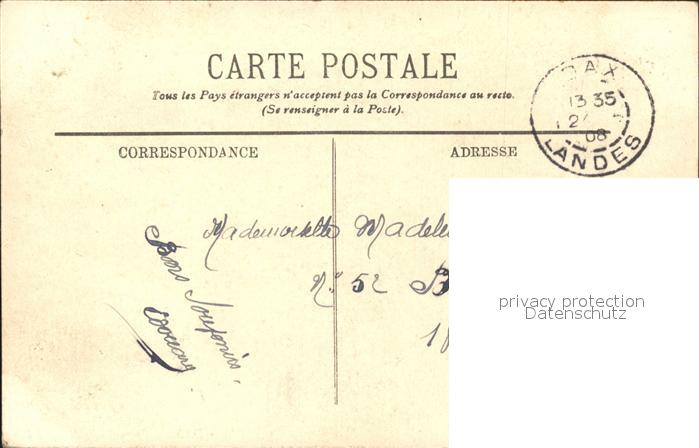 CARTE POSTALE
Tous les Pays étrangers n'acceptent pas la Correspondance au recto.
(Se renseigner à la Poste).
DAX
13 35
2
08
LANDES
CORRESPONDANCE
ADRESSE
Mademoiselle Madele
N° 52 B
Bons Souvenirs
privacy protection
Datenschutz